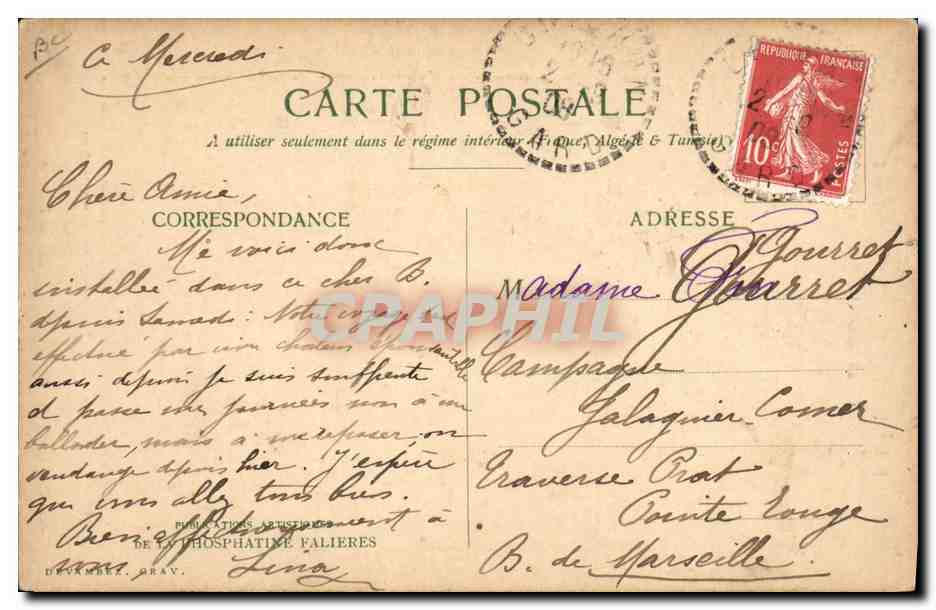 Ce Mercredi
CARTE POSTALE
A utiliser seulement dans le régime intérieur (France, Algérie & Tunisie)
GARD
REPUBLIQUE FRANÇAISE
10c
POSTES
Chère Amie,
CORRESPONDANCE
Me voici donc
installée dans ce cher B.
depuis Samedi : Notre voyage s'est
effectué par une chaleur épouvantable
aussi depuis je suis souffrante
et passe mes journées non à me
ballader, mais à me reposer, on
vendange depuis hier. J'espère
que vous allez tous bien.
Bien affectueusement à
vous, Lina
PUBLICATIONS ARTISTIQUES
DE LA PHOSPHATINE FALIERES
DEVAMBEZ, GRAV.
ADRESSE
Gourret
Madame Gourret
Campagne
Jalaguier Comer
Traverse Prat
Pointe Rouge
B. de Marseille.
CPAPHIL